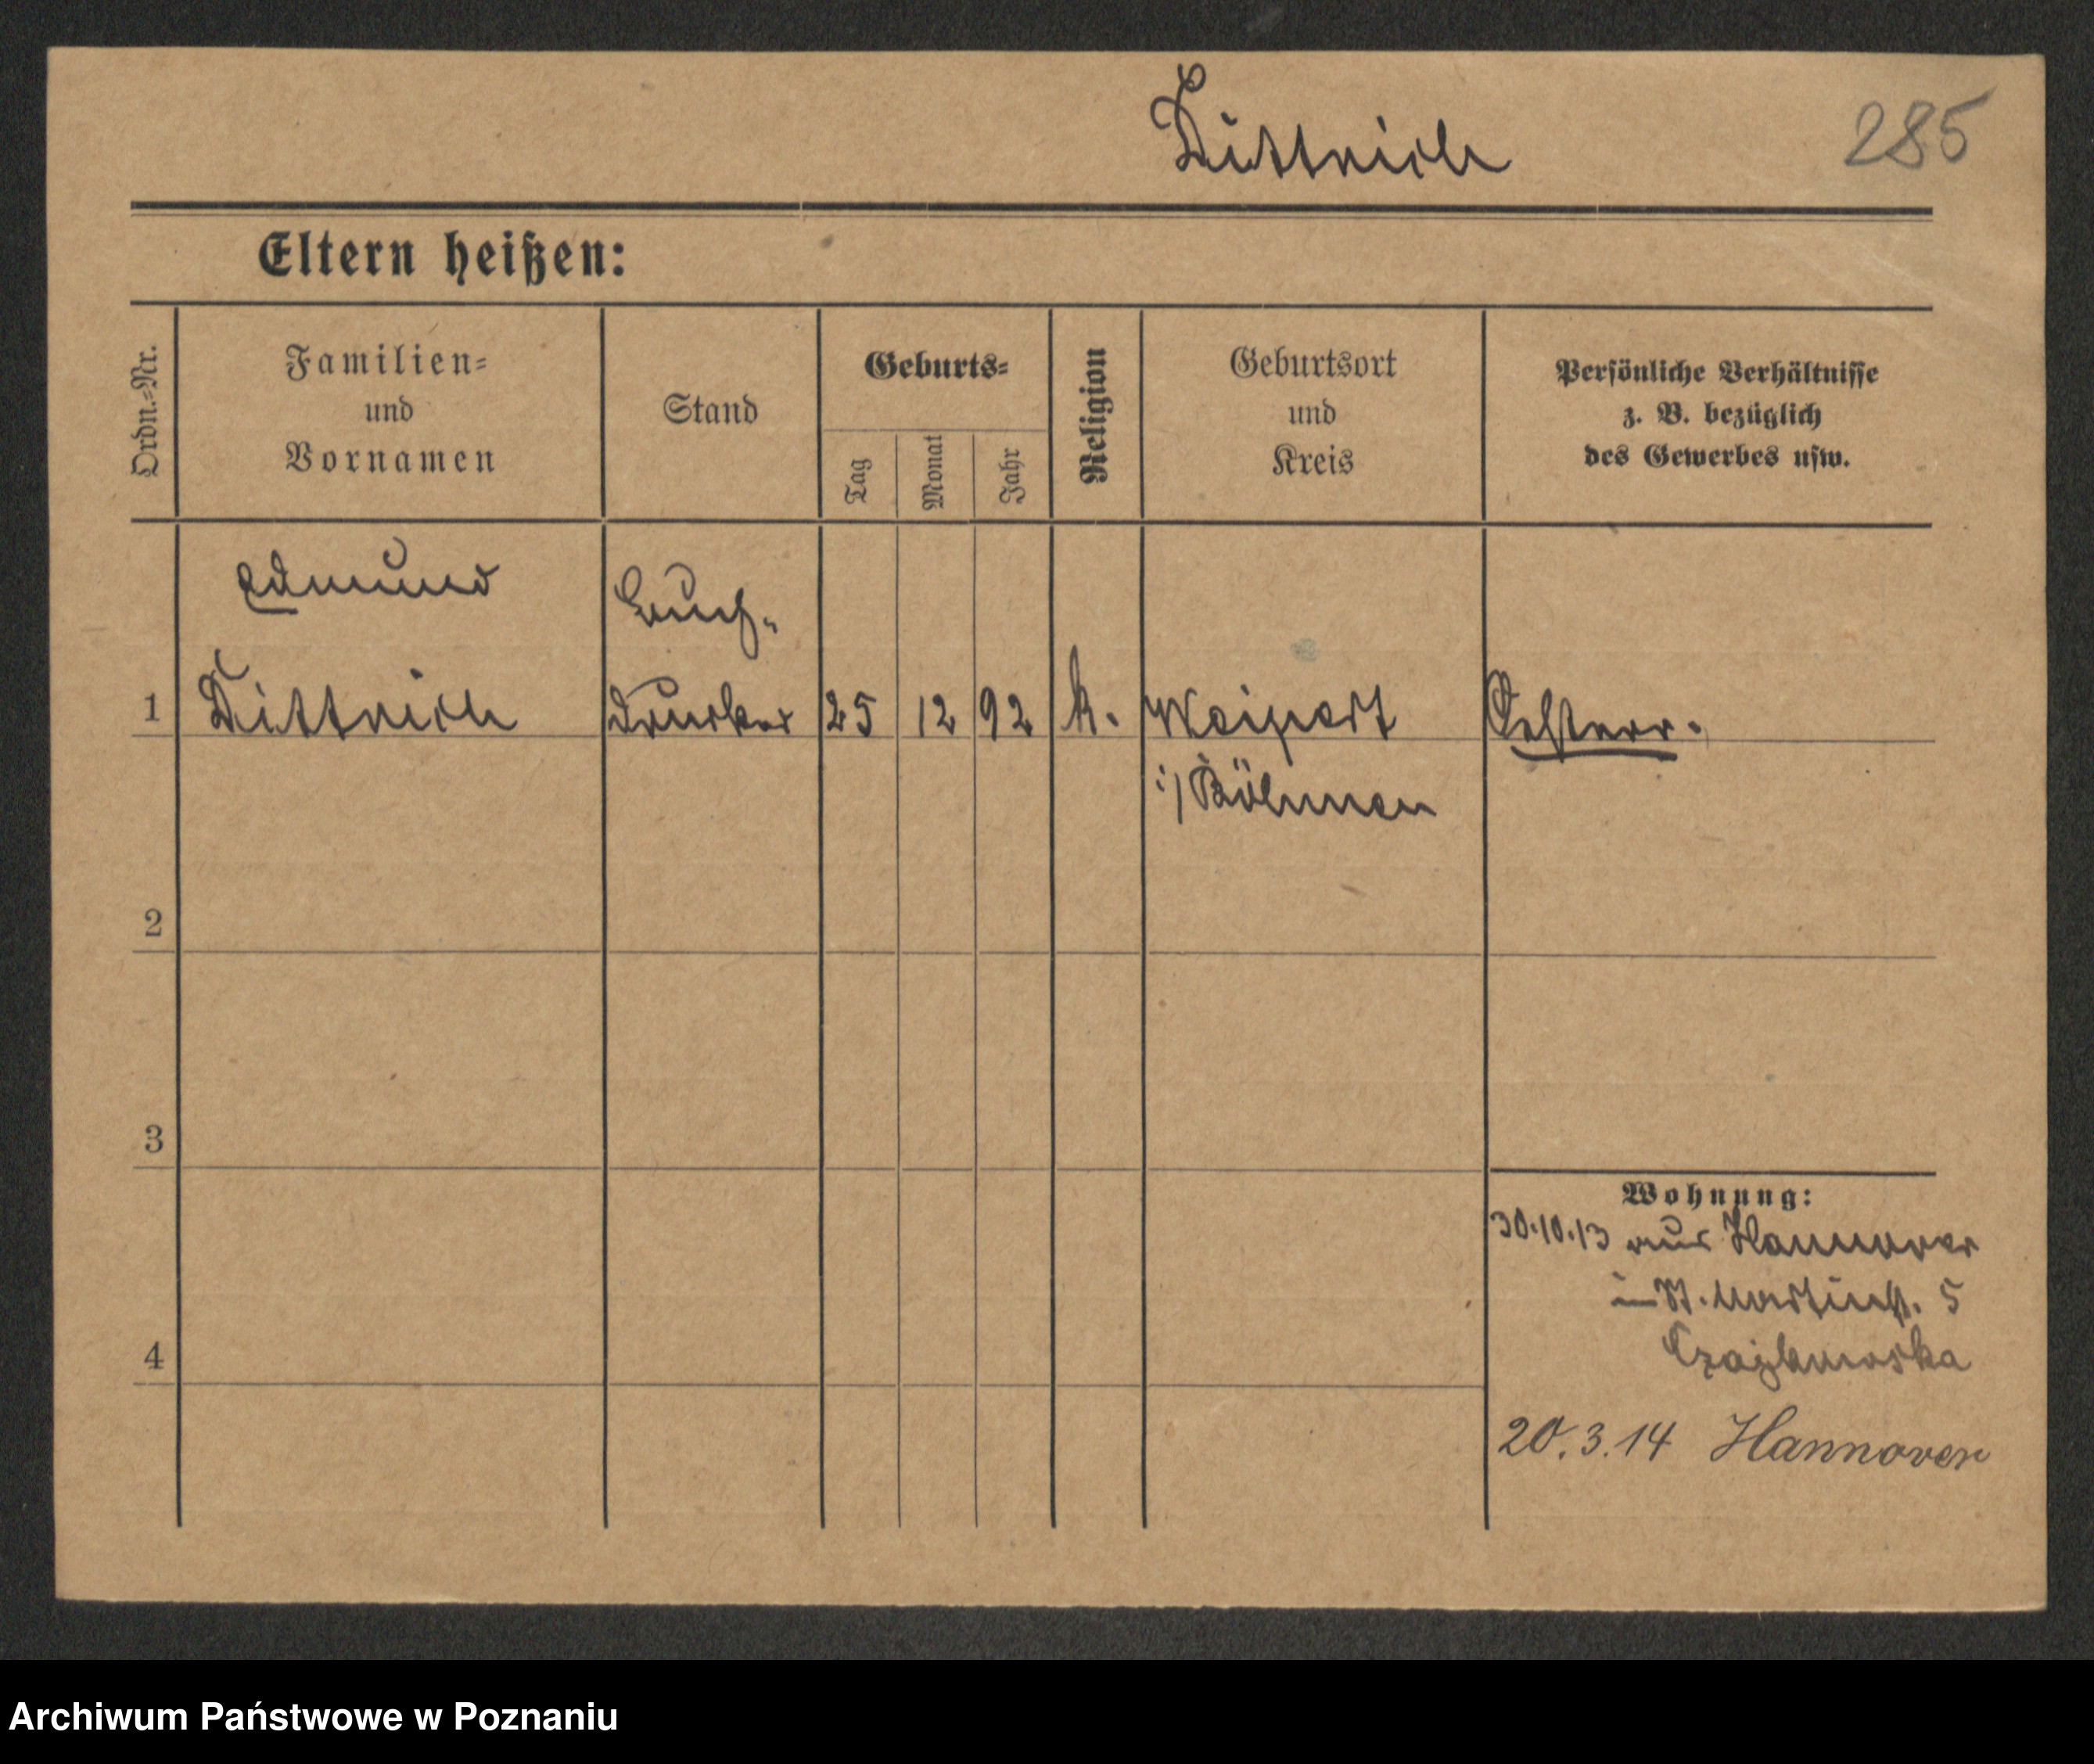 Dittrich 285
Eltern heißen:
Ordn.-Nr.
Familien-
und
Vornamen
Stand
Geburts-
Tag
Monat
Jahr
Religion
Geburtsort
und
Kreis
Persönliche Verhältnisse
z. B. bezüglich
des Gewerbes usw.
Edmund Buch-
1 Dittrich drucker 25 12 92 k. Weipert Oesterr.
i/ Böhmen
2
3
Wohnung:
30.10.13 aus Hannover
in St. Martinst. 5
4
20.3.14 Hannover
Archiwum Państwowe w Poznaniu